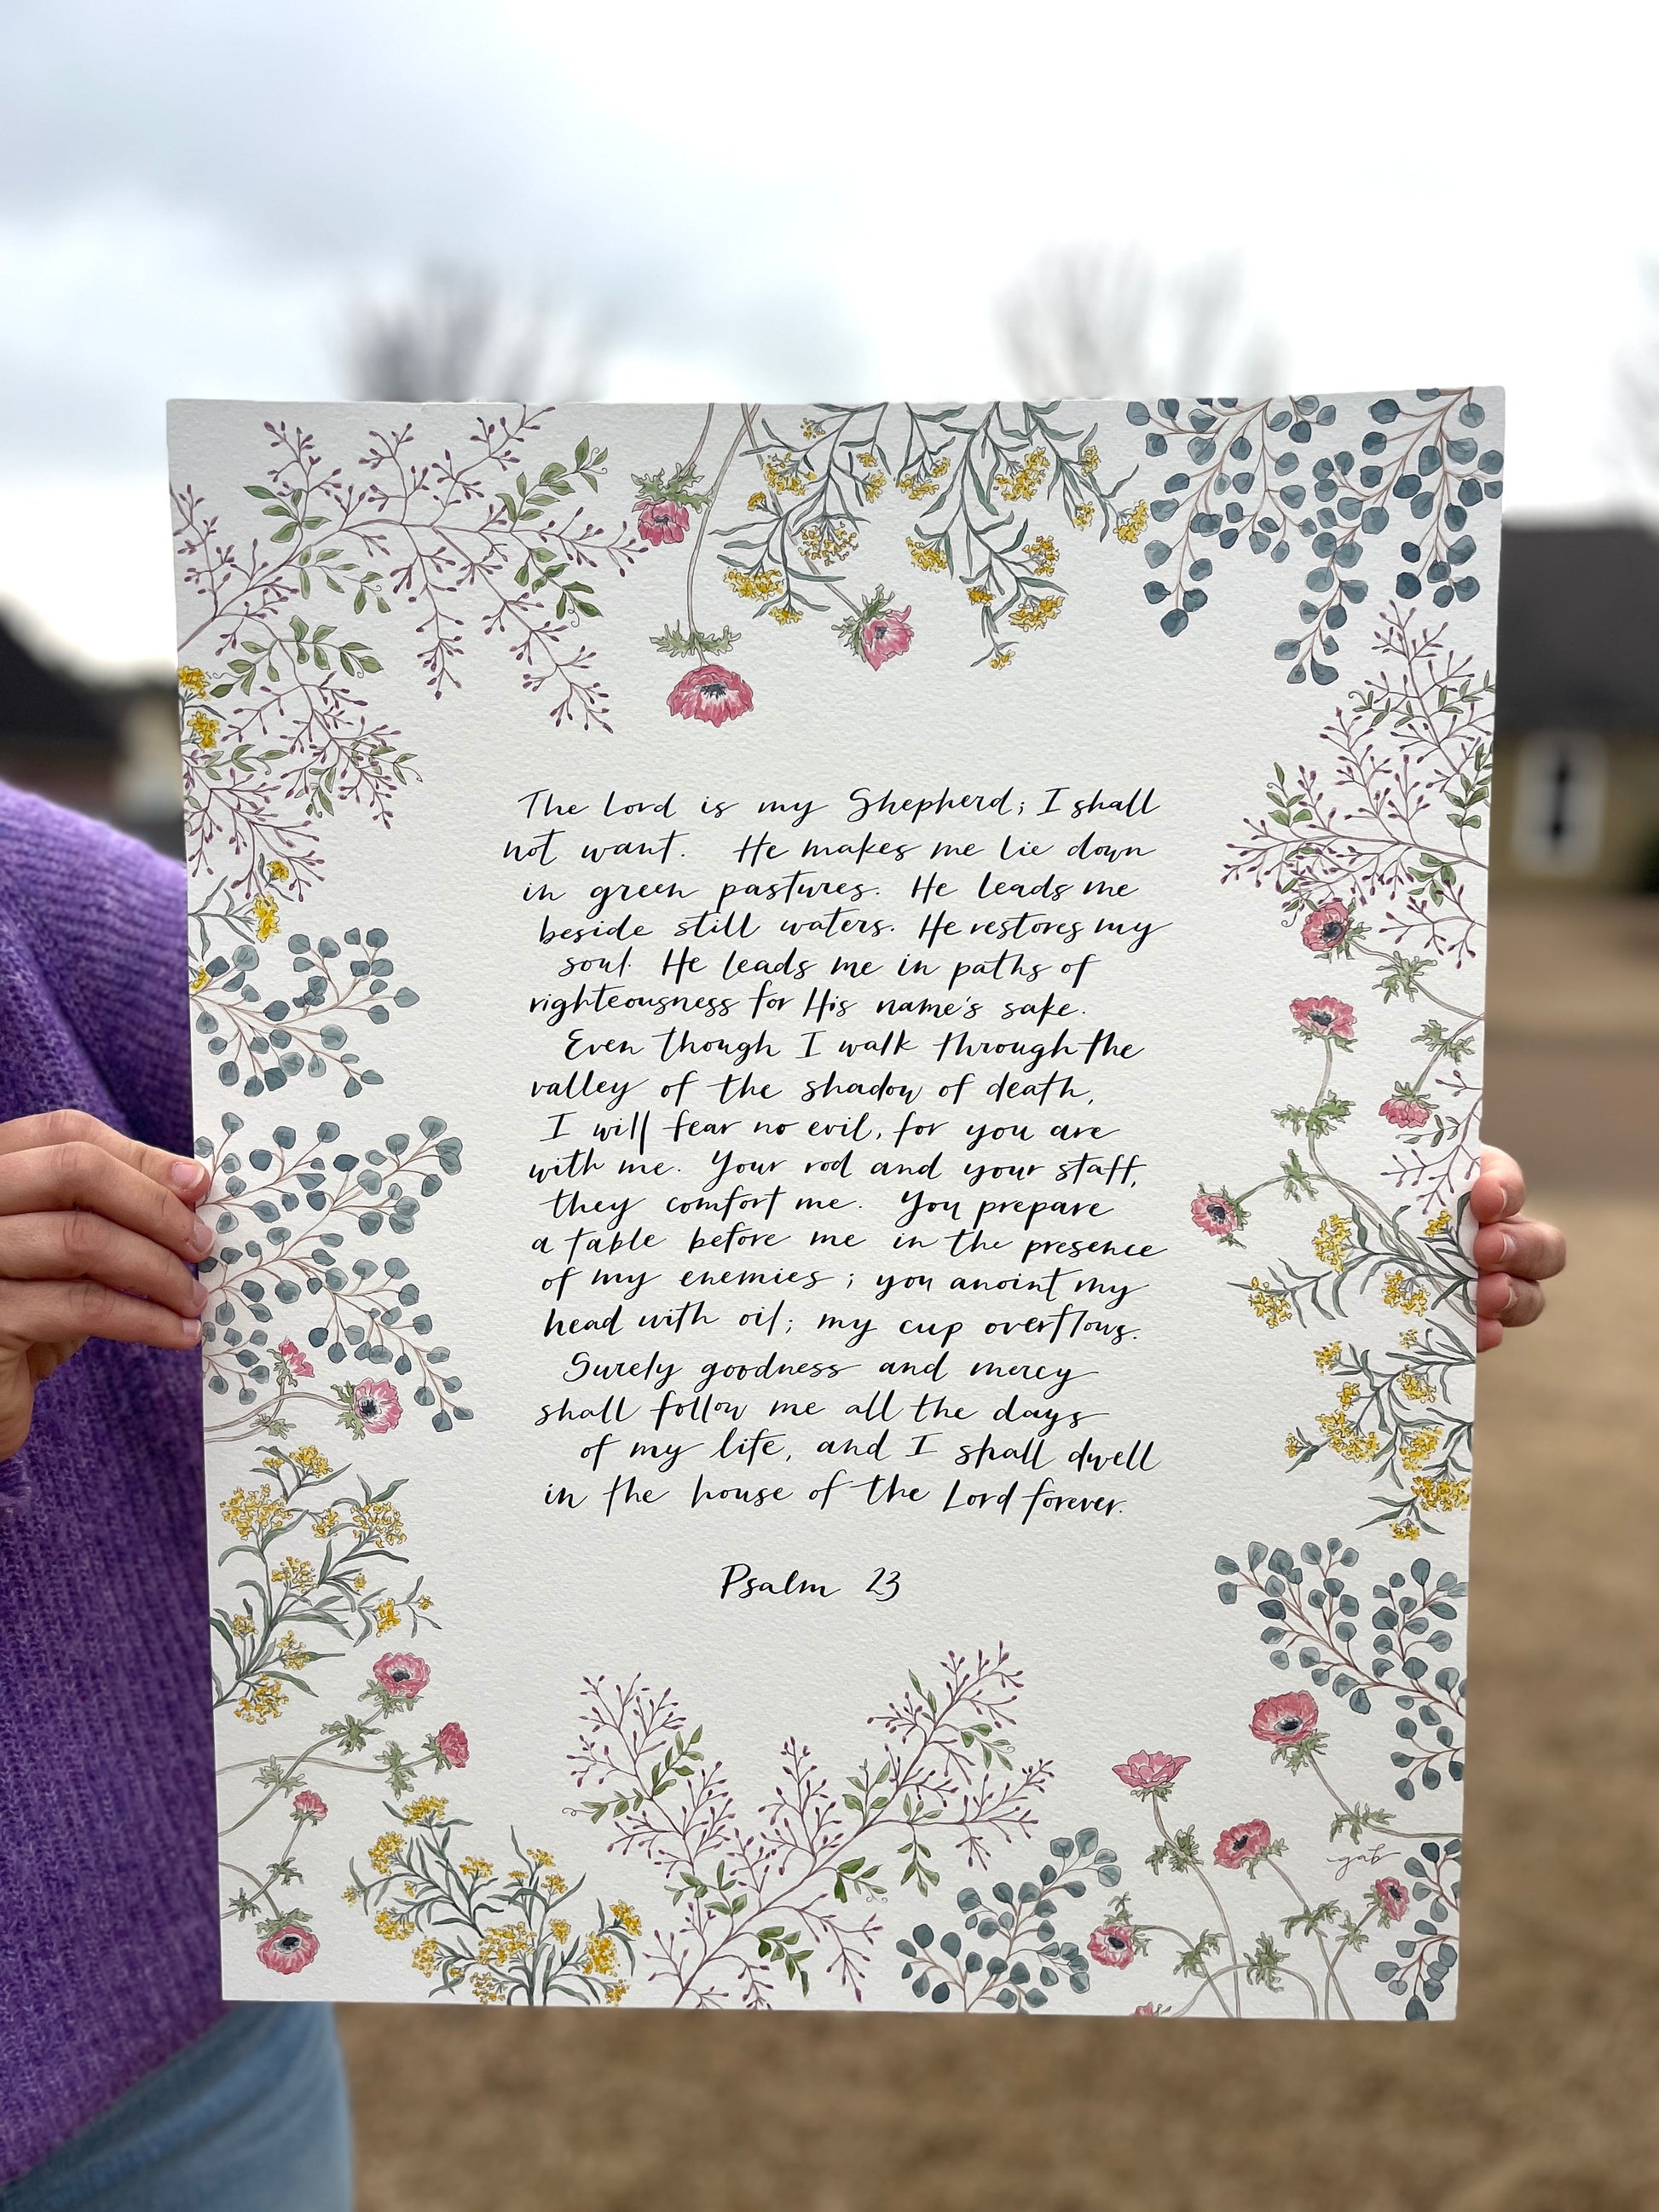 The Lord is my Shepherd; I shall
not want. He makes me lie down
in green pastures. He leads me
beside still waters. He restores my
soul. He leads me in paths of
righteousness for His name's sake.
Even though I walk through the
valley of the shadow of death,
I will fear no evil, for you are
with me. Your rod and your staff,
they comfort me. You prepare
a table before me in the presence
of my enemies; you anoint my
head with oil; my cup overflows.
Surely goodness and mercy
shall follow me all the days
of my life, and I shall dwell
in the house of the Lord forever.
Psalm 23
gab